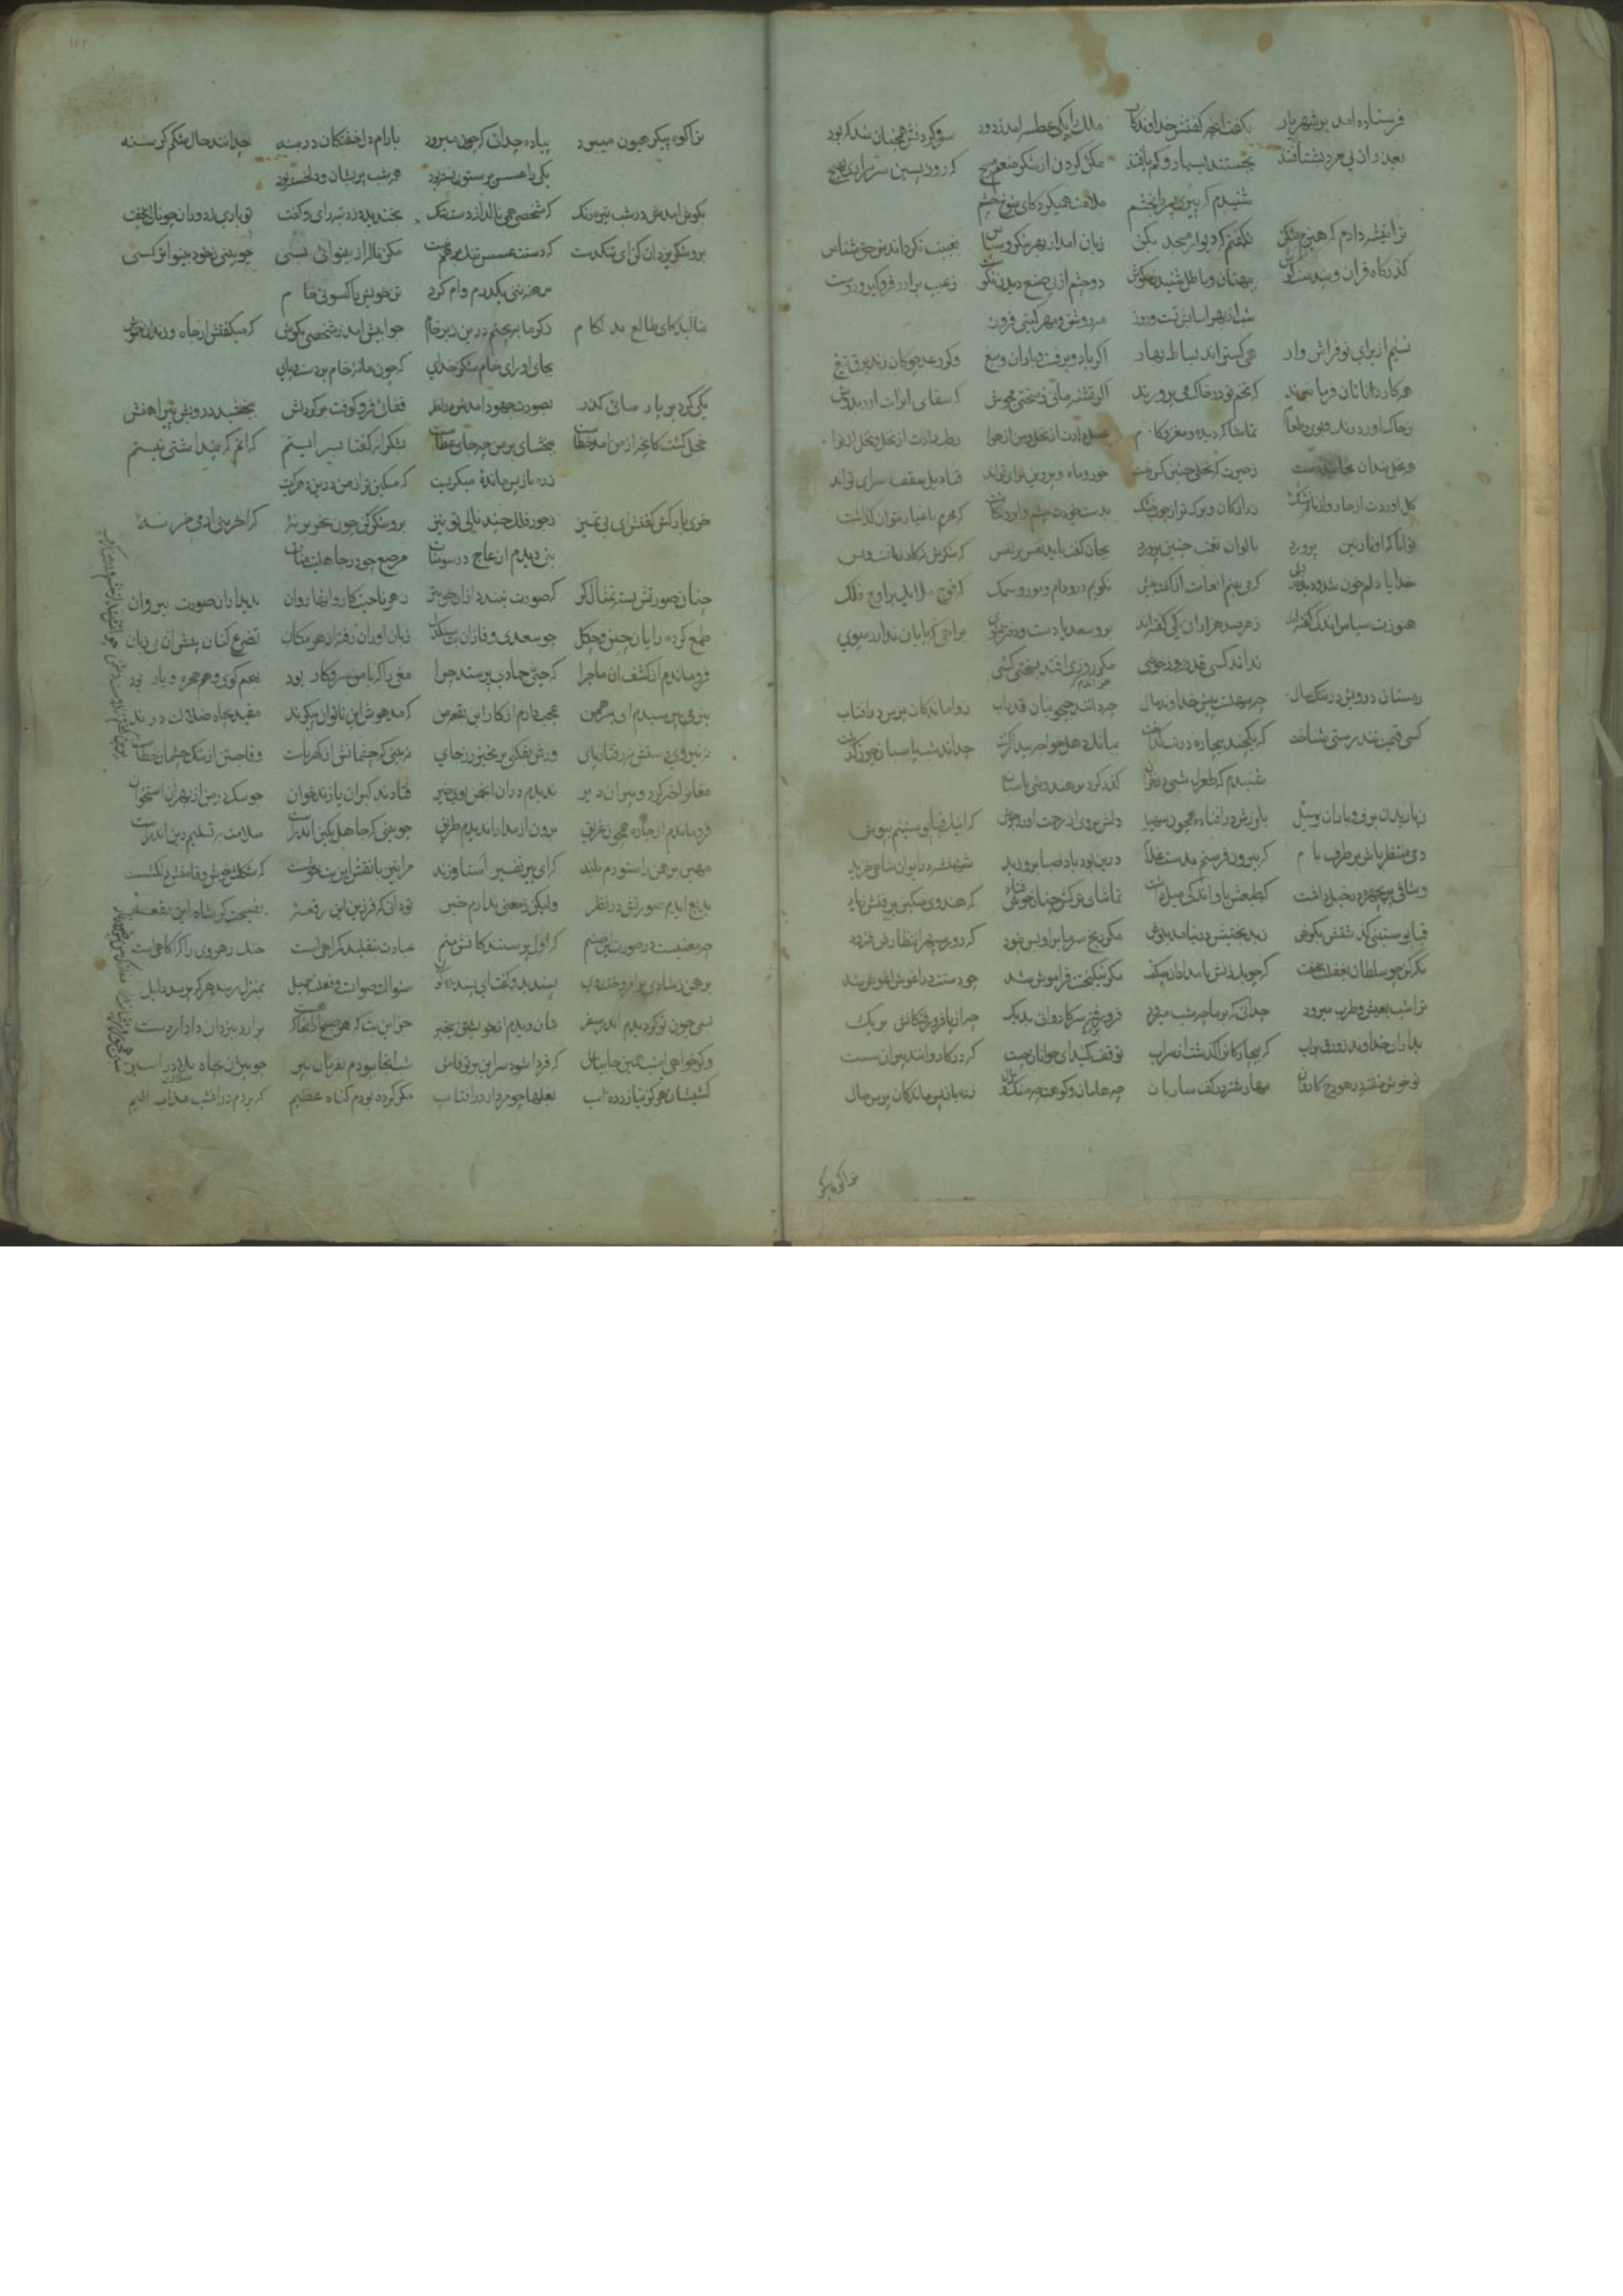 فرستاده امد بر شهریار بکفت انچه کفتش خداوندکار ملک را یکی عطسه امد ز دود سر و کردنش همچنان شد که بود
بعذر از پی مرد بشتافتند بجستند بسیار و کم یافتند مکن کردن از شکر منعم مپیچ که روز پسین سر براری بهیچ
شنیدم که پیری پسر را بخشم ملامت همیکرد کای شوخ چشم
ترا تیشه دادم که هیزم شکن نکفتم که دیوار مسجد بکن زبان امد از بهر شکر و سپاس بغیبت نکرداندش حق شناس
کذرکاه قران و پندست کوش ببهتان و باطل شنیدن مکوش دو چشم از پی صنع دیدن نکوست ز عیب برادر فروکیر و دوست
شب از بهر اسایش تست و روز مه روشن و مهر کیتی فروز
نسیم از برای تو فراش وار همی کستراند بساط بهار اکر باد و برفست و باران و میغ وکر رعد چوکان زند برق تیغ
همه کارداران فرمان برند که تخم تو در خاک می پرورند اکر تشنه مانی ز سختی مجوش که سقای ابر ابت ارد بدوش
ز خاک اورد رنک و بوی و طعام تماشاکه دیده و مغز و کام عسل دادت از نحل و من از هوا رطب دادت از نخل و نخل از نوا
ز حیرت که نخلی چنین کس نبست خور و ماه و پروین برای تواند قنادیل سقف سرای تواند
بدست خودت چشم و ابرو نکاشت که محرم باغیار نتوان کذاشت
توانا که او نازنین پرورد بالوان نعمت چنین پرورد بجان کفت باید نفس بر نفس که شکرش نه کار زبانست و بس
خدایا دلم خون شد و دیده ریش که می بینم انعامت از کفت بیش نکویم دد و دام و مور و سمک که فوج ملایک بر اوج فلک
هنوزت سپاس اندکی کفته اند ز هر صد هزاران یکی کفته اند برو سعدیا دست و دفتر بشوی براهی که پایان ندارد مپوی
نداند کسی قدر روز خوشی مکر روزی افتد بسختی کشی
زمستان درویش در تنک سال چه سهلست پیش خداوند مال چه دانند جیحونیان قدر اب ز واماندکان پرس در افتاب
کسی قیمت تندرستی شناخت که یکچند بیچاره در تب کداخت
شنیدم که طغرل شبی در خزان کذر کرد بر هندوی پاسبان
ز باریدن برف و باران و سیل بلرزش در افتاده همچون سهیل دلش بروی از رحمت اورد جوش که اینک قبا پوستینم بپوش
دمی منتظر باش بر طرف بام که بیرون فرستم بدست غلام درین بود و باد صبا بر وزید شهنشه در ایوان شاهی خزید
وشاقی پریچهره در خیل داشت که طبعش بدو اندکی میل داشت تماشای ترکش چنان خوش فتاد که هندوی مسکین برفتش ز یاد
قبا پوستینی کذشتش بکوش ز بدبختیش در نیامد بدوش مکر رنج سرما برو بس نبود که دور سپهر انتظارش فزود
نکه کن چو سلطان بغفلت بخفت که چوبک زنش بامدادان چه کفت مکر نیکبختت فراموش شد چو دستت در اغوش اغوش شد
ترا شب بعیش و طرب میرود چه دانی که بر ما چه شب میرود فرو برده سر کاروانی بدیک چه از پا فرو رفتکانش بریک
بدار ای خداوند زورق بر اب که بیچارکان را کذشت از سر اب توقف کنید ای جوانان چست که در کاروانند پیران سست
تو خوش خفته در هودج کاروان مهار شتر در کف ساربان چه هامون و کوهت چه سنک و رمال ز ره باز پس ماندکان پرس حال
ترا کوه پیکر
ترا کوه پیکر هیون میبرد پیاده چه دانی که چون میرود بارام دل خفتکان در بنه چه دانند حال شکم کرسنه
یکی را عسس بر ستون بسته بود همه شب پریشان و دلخسته بود
بکوش امدش در شب تیره رنک که شخصی همی نالد از دست تنک بخندید دزد تبه رای و کفت تو باری ز دوران چه نالی بخفت
برو شکر یزدان کن ای تنکدست که دستت عسس تنک بر هم نبست مکن ناله از بینوائی بسی چو بینی ز خود بینواتر کسی
برهنه تنی یکدرم وام کرد تن خویش را کسوتی خام
بنالید کای طالع بد لکام ز کرما بپختم درین زیر خام جوابش امد ز شخصی بکوش که میکفتش از چاه زندان خموش
بجای اور ای خام شکر خدای که چون ما نه خام بر دست و پای
یکی کرد بر پارسائی کذر بصورت جهود امدش در نظر قفائی فرو کوفت بر کردنش ببخشید درویش پیراهنش
خجل کشت کانچه از من امد خطاست ببخشای بر من چه جای عطاست بشکرانه کفتا بسر ایستم که انم که پنداشتی نیستم
ز ره باز پس مانده میکریست که مسکین تر از من درین دشت کیست
خری بارکش کفتش ای بی تمیز ز جور فلک چند نالی تو نیز برو شکر کن چون بخر بر نه که اخر بنی ادمی خر نه
بتی دیدم از عاج در سومنات مرصع چو در جاهلیت منات
چنان صورتش بسته تمثال کر که صورت نبندد از ان خوبتر ز هر ناحیت کاروانها روان بدیدار ان صورت بی روان
طمع کرده رایان چین و چکل چو سعدی وفا زان بت سنکدل زبان اوران رفته از هر مکان تضرع کنان پیش ان بی زبان
فرو ماندم از کشف ان ماجرا که حیی جمادی پرستد چرا مغی را که با من سر و کار بود نکوکوی و هم حجره و یار بود
بنرمی بپرسیدم ای برهمن عجب دارم از کار این بقعه من که مدهوش این ناتوان پیکرند مقید بچاه ضلالت درند
نه نیروی دستش نه رفتار پای ورش بفکنی بر نخیزد ز جای نبینی که چشمانش از کهرباست وفا جستن از سنک چشمان خطاست
مغانرا خبر کرد و پیران دیر ندیدم در ان انجمن روی خیر فتادند کبران پازند خوان چو سک در من از بهر ان استخوان
فرو ماندم از چاره همچون غریق برون از مدارا ندیدم طریق چو بینی که جاهل بکین اندرست سلامت بتسلیم دین اندرست
مهین برهمن را ستودم بلند که ای پیر تفسیر استا و زند مرا نیز با نقش این بت خوشست که شکلی خوش و قامتی دلکشست
بدیع ایدم صورتش در نظر ولیکن ز معنی ندارم خبر تو دانی که فرزین این رقعه نصیحت کر شاه این بقعه
چه معنیست در صورت این صنم که اول پرستندکانش منم عبادت بتقلید کمراهی است خنک رهروی را که اکاهی است
برهمن ز شادی بر افروخت روی پسندید و کفت ای پسندیده کوی سئوالت صوابست و فعلت جمیل بمنزل رسد هر که پرسد دلیل
بسی چون تو کردیدم اندر سفر بتان دیدم از خویشتن بیخبر جز این بت که هر صبح از اینجا که هست برارد بیزدان دادار دست
وکر خواهی امشب همین جا بباش که فردا شود سر این بر تو فاش شب انجا ببودم بفرمان پیر چو بیژن بچاه بلا در اسیر
کشیشان هرکز نیازرده اب بغلها چو مردار در افتاب مکر کرده بودم کناه عظیم که بردم در ان شب عذاب الیم